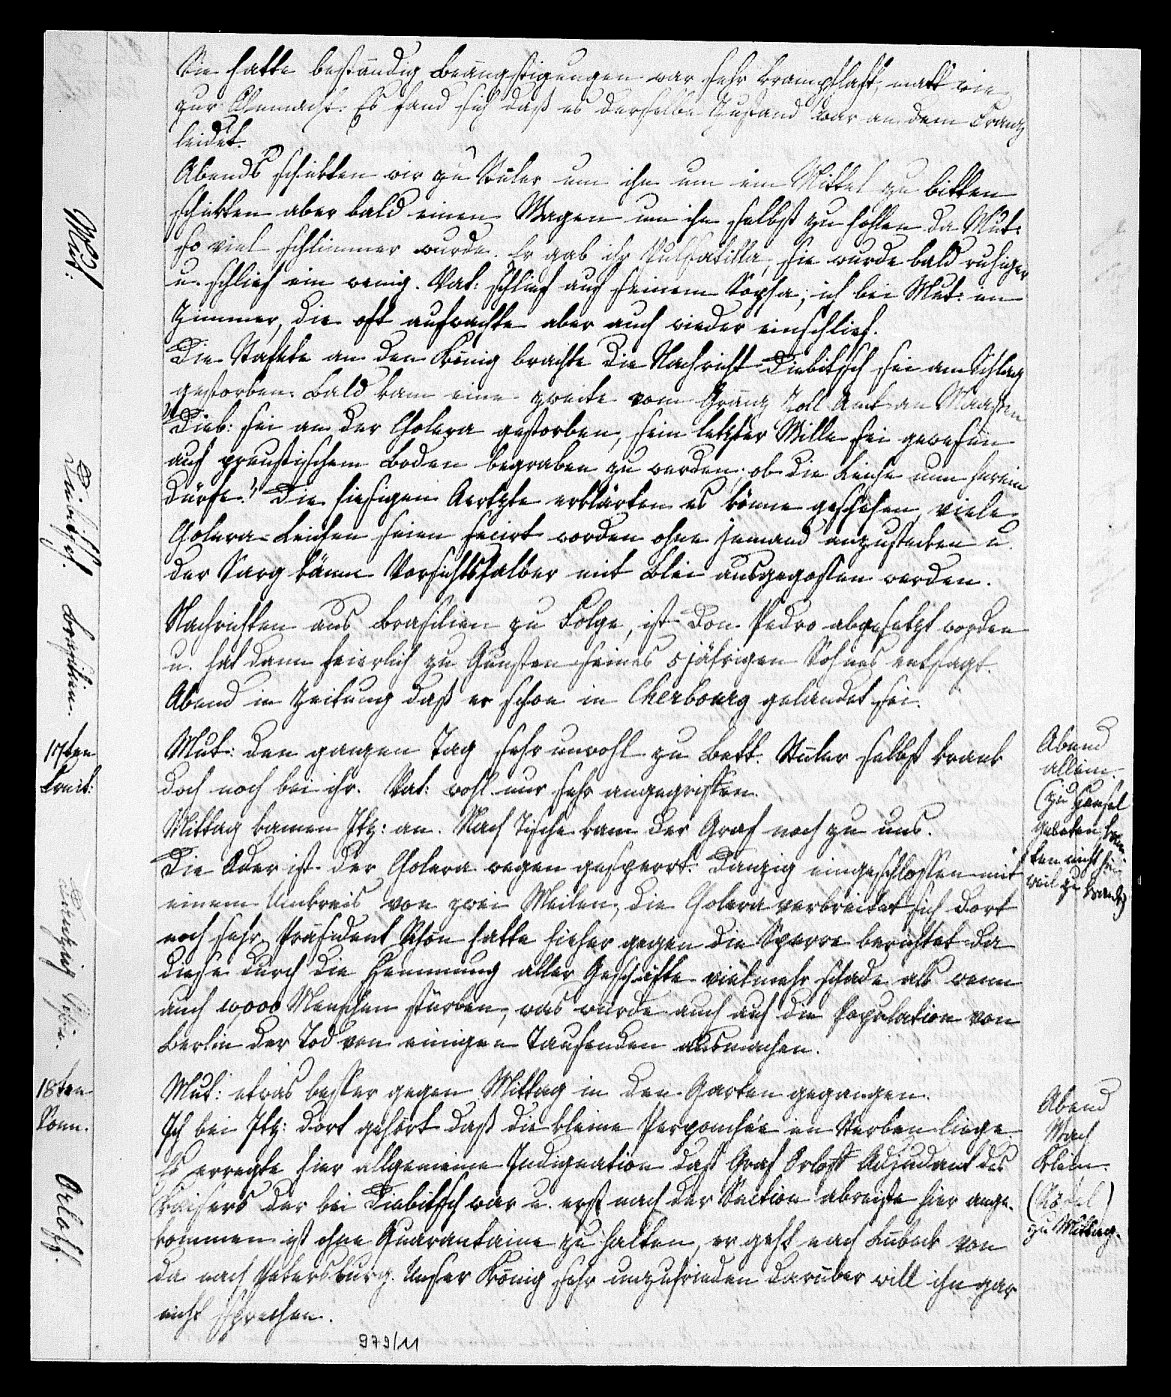 Sie hatte beständig Beängstigungen war sehr krampfhaft, matt wie
zur Ohnmacht. Es fand sich daß es derselbe Zustand war an dem Frantz
leidet.
Abends schickten wir zu Stüler um ihn um ein Mittel zu bitten
schickten aber bald einen Wagen um ihn selbst zu hohlen da Mut:
so viel schlimmer wurde. Er gab ihr Pulsatilla, sie wurde bald ruhiger
u. schlief ein wenig. Vat: schlief auf seinem Sopha, ich bei Mut: im
Zimmer, die oft aufwachte aber auch wieder einschlief.
Mut:
Die Stafette an den König brachte die Nachricht Diebitsch sei am Schlag
gestorben. Bald kam eine zweite vom Gränz Zoll Amt an Maassen
"Dieb: sei an der Cholera gestorben, sein letzter Wille sei gewesen
auf preußischem Boden begraben zu werden, ob die Leiche nun herein
dürfe." Die hiesigen Aertzte erklärten es könne geschehen, viele
Cholera-Leichen seien secirt worden ohne jemand anzustecken u.
der Sarg könne Vorsichtshalber mit Blei ausgegossen werden.
Diebitsch.
Nachrichten aus Brasilien zu Folge, ist Don Pedro abgesetzt worden
u. hat dann feierlich zu Gunsten seines 5jährigen Sohnes entsagt.
Abend in Zeitung daß er schon in Cherbourg gelandet sei.
Brasilien.
17ten
Mut: den ganzen Tag sehr unwohl zu Bett. Stüler selbst krank
doch noch bei ihr. Vat: wohl nur sehr angegriffen.
Mittag kamen Itz: an. Nach Tische kam der Graf noch zu uns.
Die Oder ist der Cholera wegen gesperrt. Danzig eingeschlossen mit
einem Umkreis von zwei Meilen, die Cholera verbreitet sich dort
noch sehr, Präsident Schön hatte hieher gegen die Sperre berichtet da
diese durch die Hemmung aller Geschäfte vielmehr schade als wenn
auch 10000 Menschen stürben, was würde auch auf die Population von
Berlin der Tod von einigen Tausenden ausmachen.
Abend
allein.
(zu Hensel
gebeten
weil zu krank)
18ten
Sonn.
Mut: etwas besser gegen Mittag in den Garten gegangen.
Ich bei Itz: dort gehört daß die kleine Perponcher im Sterben liege
Es erregte hier allgemeine Indignation daß Graf Orloff Adjudant des
Kaisers der bei Diebitsch war u. erst nach der Section abreiste hier ange-
kommen ist ohne Quarantaine zu halten, er geht nach Lübeck von
da nach Petersburg. Unser König sehr unzufrieden darüber will ihn gar
nicht sprechen.
Orloff.
Abend
Klein.
zu Mittag.
979/11